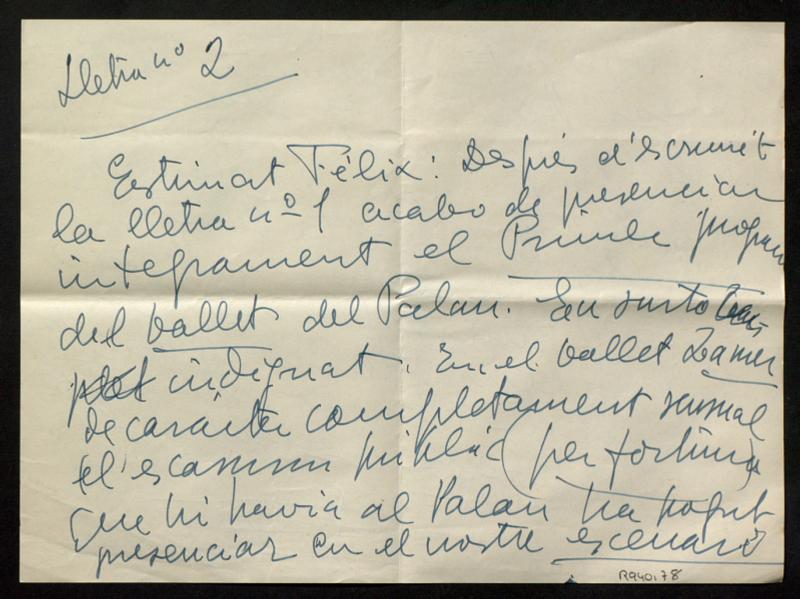 Lletra nº 2
Estimat Fèlix: Després d'escriure't
la lletra nº 1 acabo de presenciar
integrament el Primer progra
del ballet del Palau. En surto
indignat. En el ballet
de caràcter completament sexual
el'escassíssim públic (per fortuna)
que hi havia al Palau ha pogut
presenciar en el nostre escenari
R940178